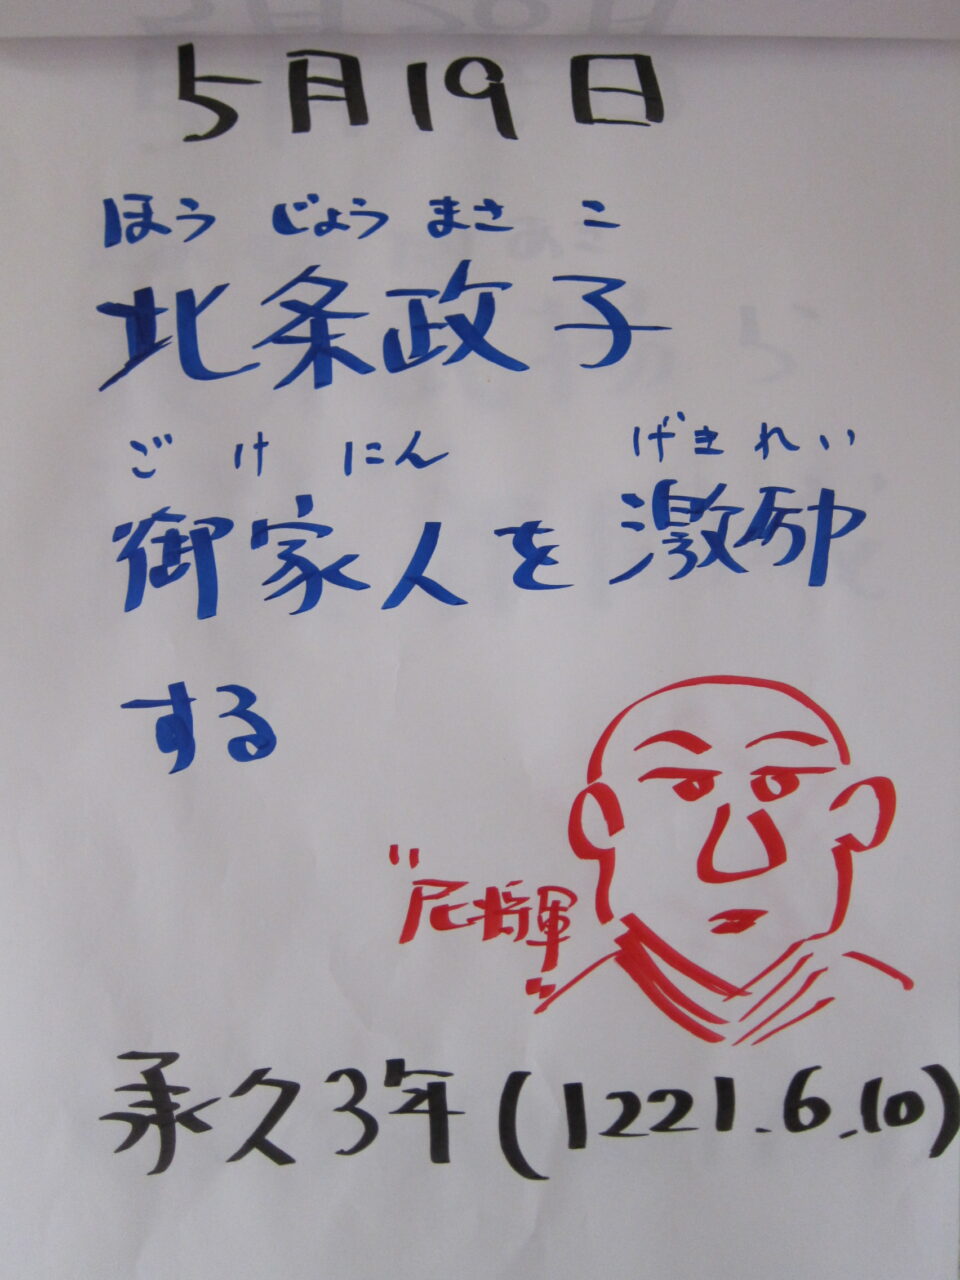 5月19日
ほうじょうまさこ
北条政子
ごけにん げきれい
御家人を激励
する
"尼将軍"
承久3年(1221.6.10)